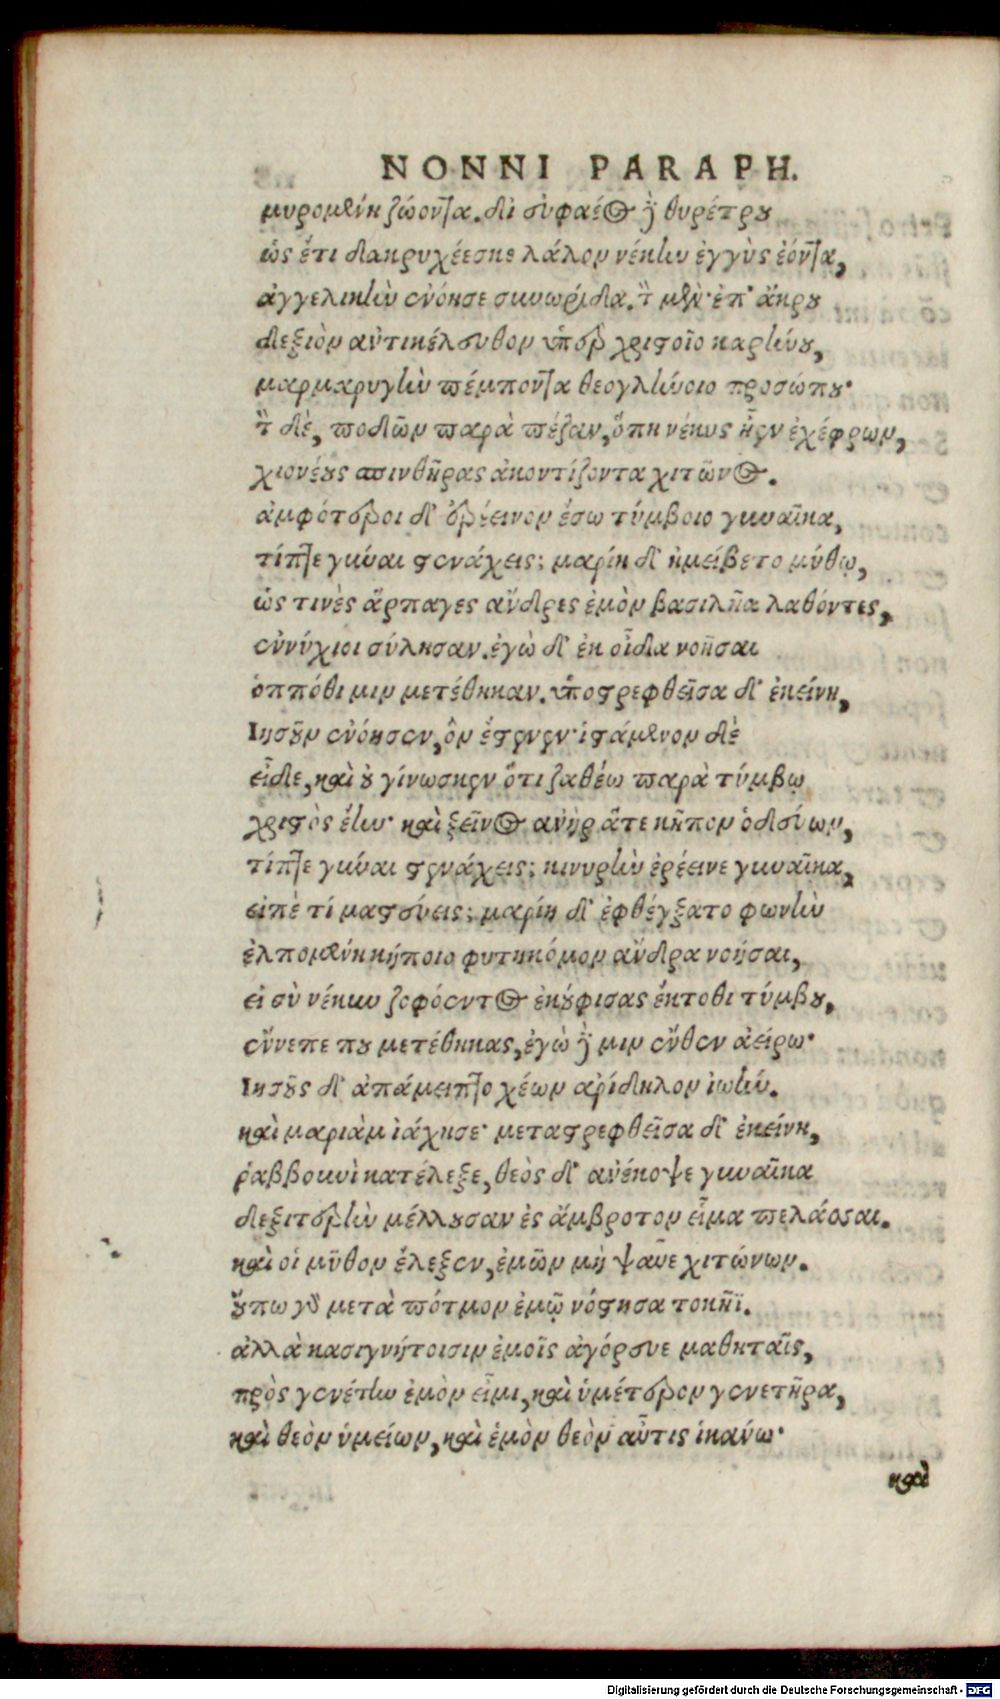 NONNI PARAPH.
μυρομένη ζώοντα. δι᾽ εὐφαέος δὲ θυρέτρου
ὡς ἔτι δακρυχέεσκε λάλον νέκυν ἐγγὺς ἐόντα,
ἀγγελικὴν ἐνόησε συνωρίδα. τὸν μὲν ἐπ᾽ ἄκρου
δεξιὸν αὐτικέλευθον ὑπὲρ χριστοῖο καρήνου,
μαρμαρυγὴν πέμποντα θεογλήνοιο προσώπου·
τὸν δὲ, ποδῶν παρὰ πέζαν, ὅπη νέκυς ἦεν ἐχέφρων,
χιονέους σπινθῆρας ἀκοντίζοντα χιτῶνος.
ἀμφότεροι δ᾽ ἐρέεινον ἔσω τύμβοιο γυναῖκα,
τίπτε γύναι στενάχεις; μαρίη δ᾽ ἠμείβετο μύθῳ,
ὥς τινὲς ἅρπαγες ἄνδρες ἐμὸν βασιλῆα λαθόντες,
ἐννύχιοι σύλησαν. ἐγὼ δ᾽ ἐκ οἶδα νοῆσαι
ὁππόθι μιν μετέθηκαν. ὑποστρεφθεῖσα δ᾽ ἐκείνη,
Ἰησοῦν ἐνόησεν, ὃν ἔστενεν· ἱστάμενον δὲ
εἶδε, καὶ οὐ γίνωσκεν ὅτι ζαθέω παρὰ τύμβῳ
χριστὸς ἔην· καὶ ξεῖνος ἀνὴρ ἅτε κῆπον ὁδεύων,
τίπτε γύναι στενάχεις; κινυρὴν ἐρέεινε γυναῖκα,
εἰπὲ τί μαστεύεις; μαρίη δ᾽ ἐφθέγξατο φωνὴν
ἐλπομένη κήποιο φυτηκόμον ἄνδρα νοήσαι,
εἰ σὺ νέκυν ζοφόεντος ἐκούφισας ἔκτοθι τύμβου,
ἔννεπε που μετέθηκας, ἐγὼ δὲ μιν ἔνθεν ἀείρω·
Ἰησοῦς δ᾽ ἀπάμειπτο χέων ἀρίδηλον ἰωήν.
καὶ μαριὰμ ἰάχησε· μεταστρεφθεῖσα δ᾽ ἐκείνη,
ῥαββουνὶ κατέλεξε, θεὸς δ᾽ ἀνέκοψε γυναῖκα
δεξιτερὴν μέλλουσαν ἐς ἄμβροτον εἷμα πελάσσαι.
καὶ οἱ μῦθον ἔλεξεν, ἐμῶν μὴ ψαῦε χιτώνων.
οὔπω γὰρ μετὰ πότμον ἐμῷ νόστησα τοκῆϊ.
ἀλλὰ κασιγνήτοισιν ἐμοῖς ἀγόρευε μαθηταῖς,
πρὸς γενέτην ἐμὸν εἶμι, καὶ ὑμέτερον γενετῆρα,
καὶ θεὸν ὑμείων, καὶ ἐμὸν θεὸν αὖτις ἱκάνω·
καὶ
Digitalisierung gefördert durch die Deutsche Forschungsgemeinschaft - DFG